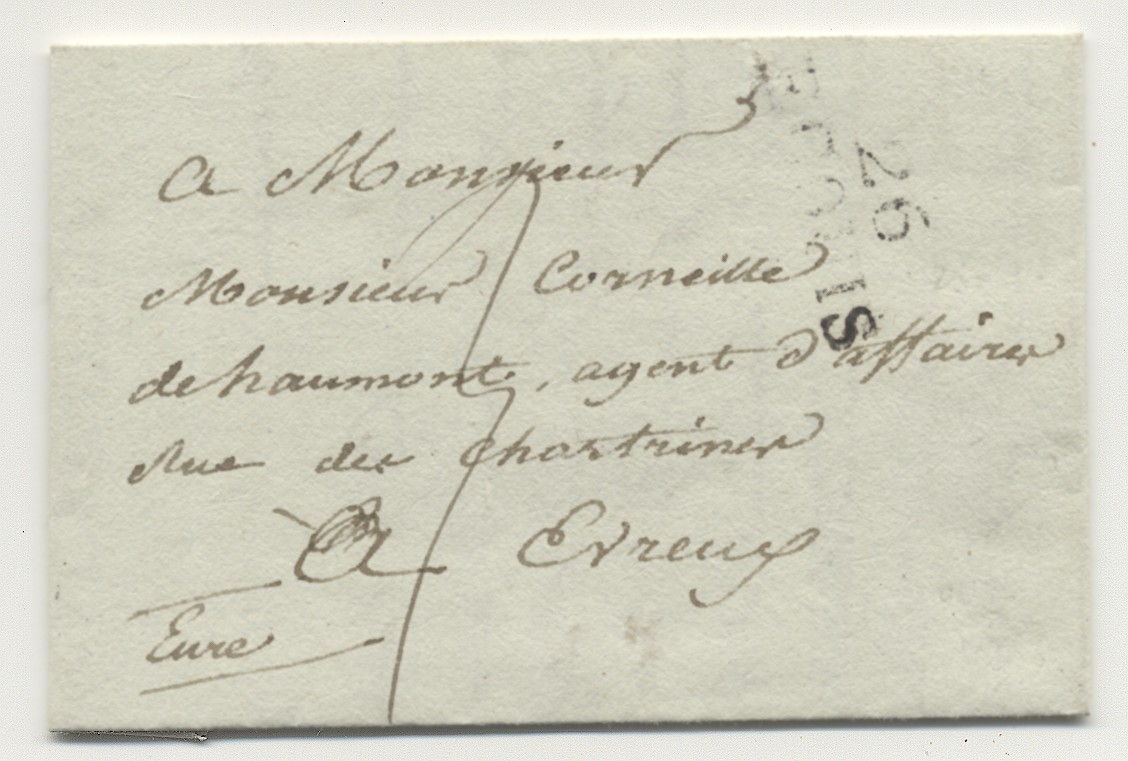 A Monsieur
Monsieur Corneille
dehaumont, agent d'affaires
Rue des Chartrines
A Evreux
Eure
26